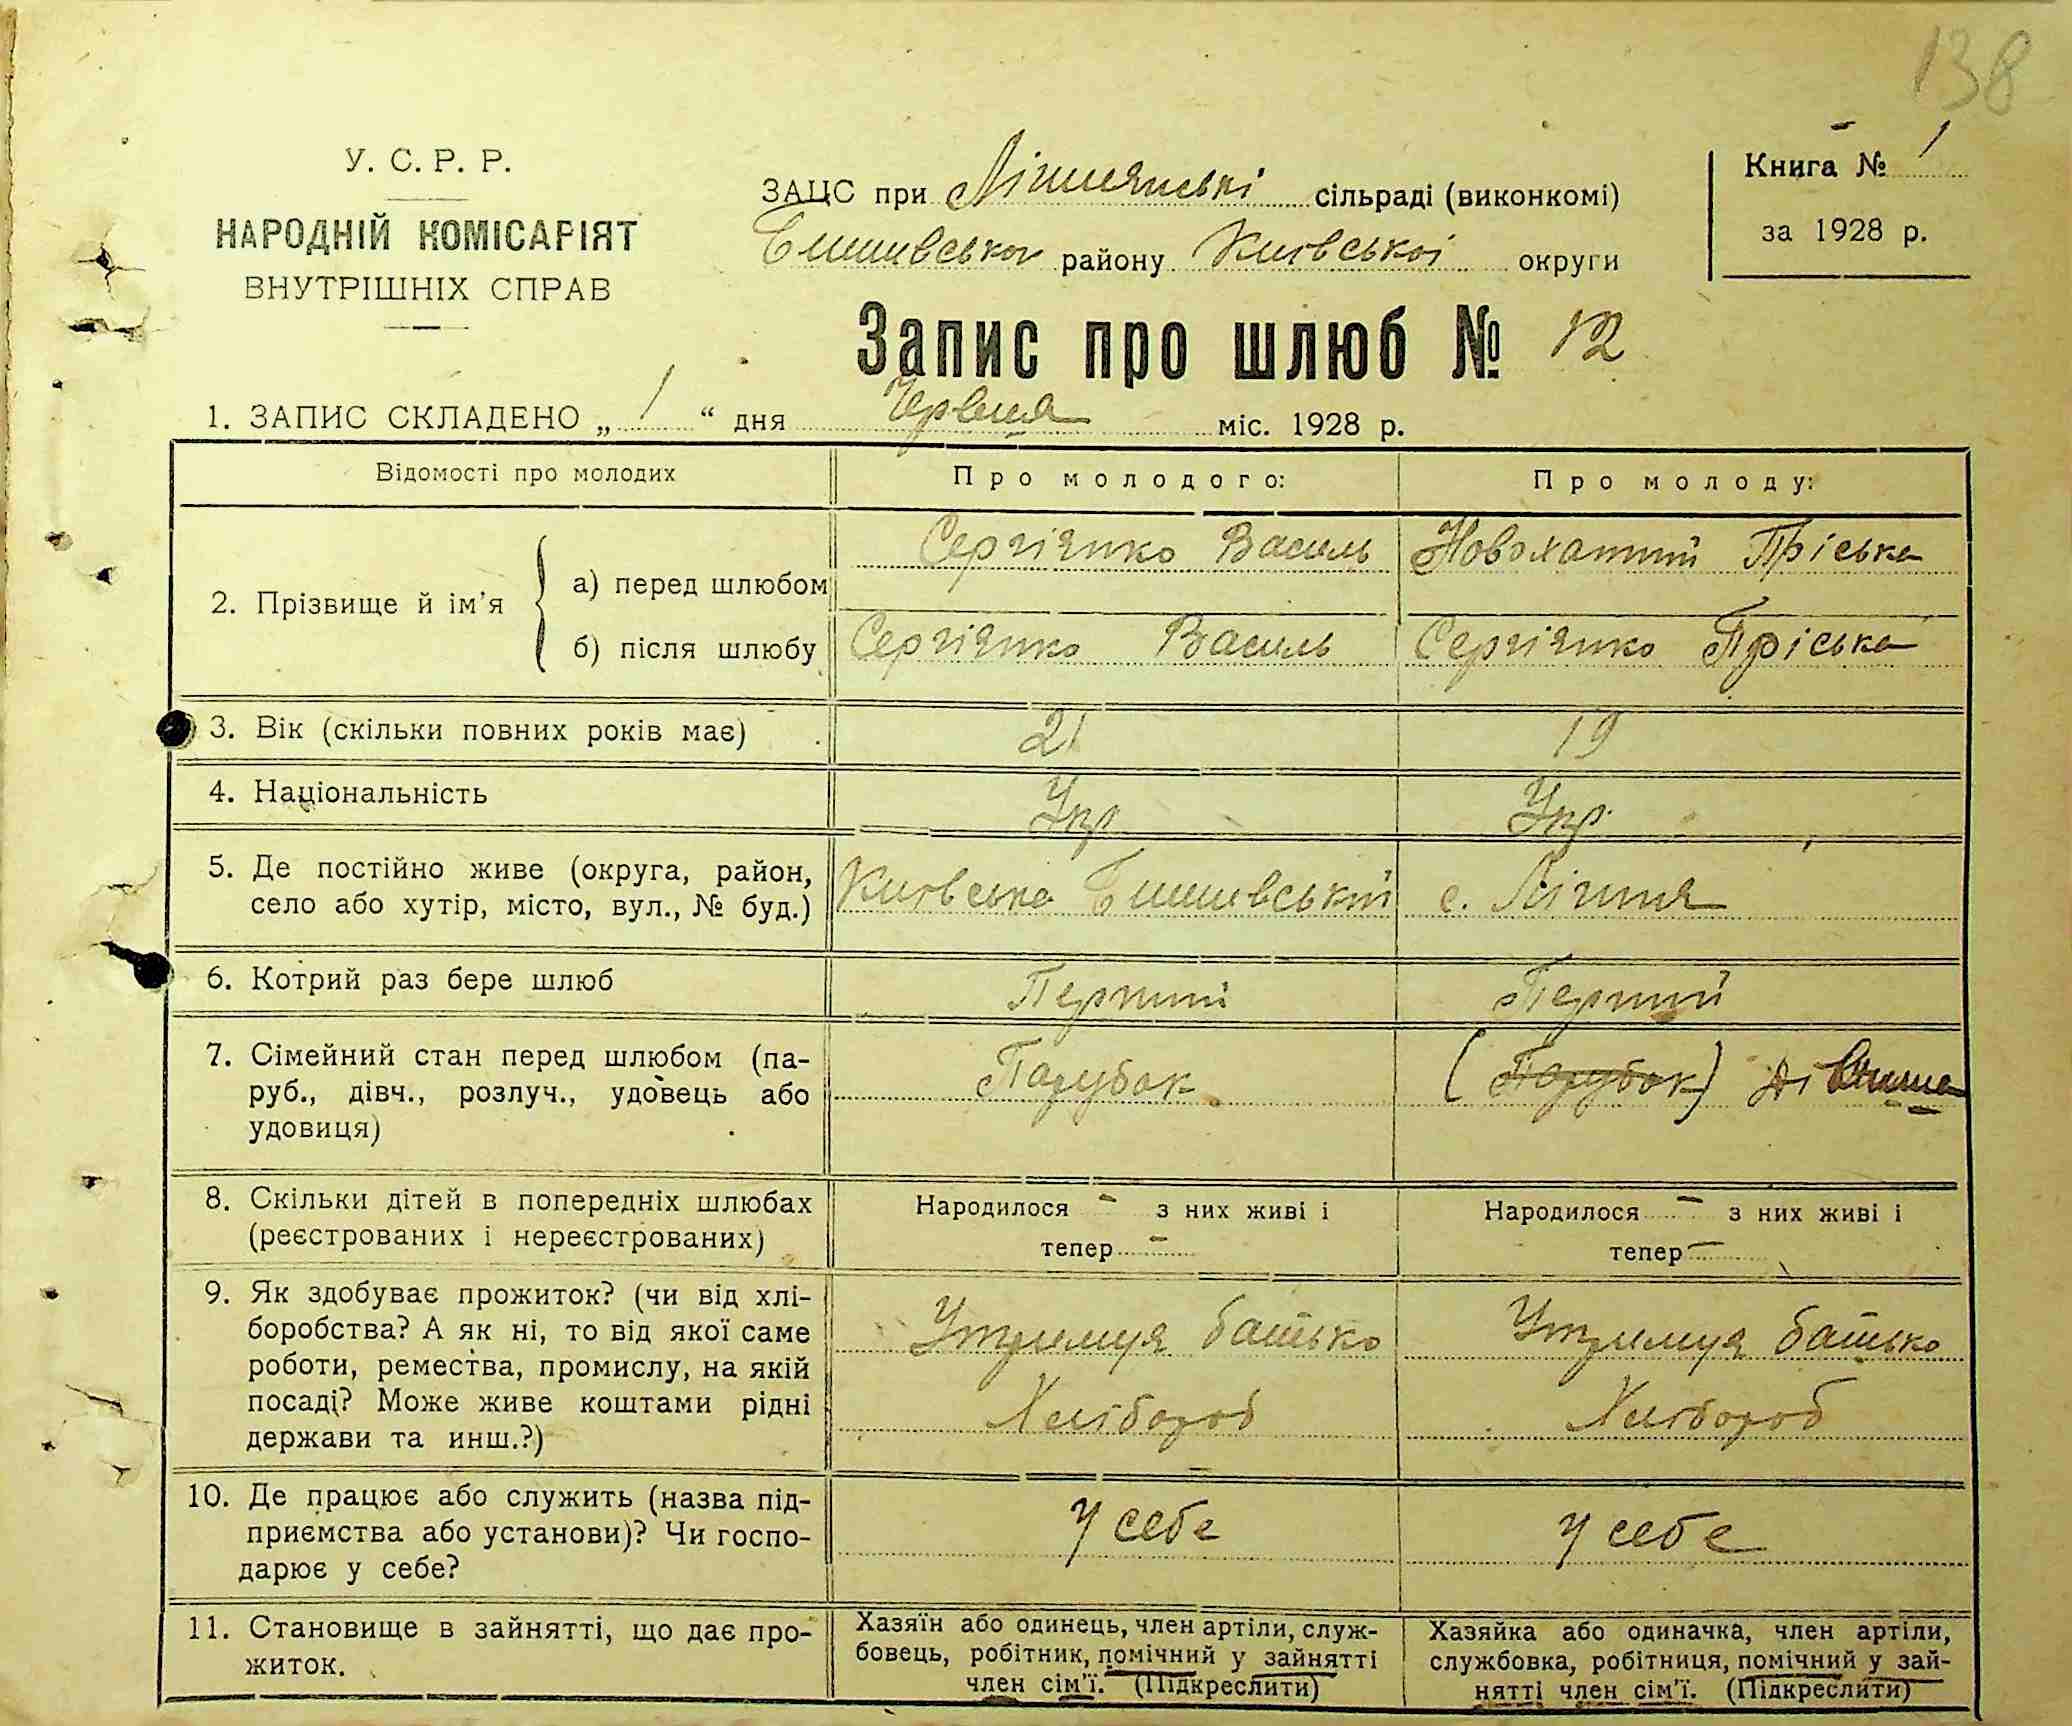 138
У. С. Р. Р.
НАРОДНІЙ КОМІСАРІЯТ
ВНУТРІШНІХ СПРАВ
ЗАЦС при сільраді (виконкомі)
району Київської округи
Книга № 1
за 1928 р.
Запис про шлюб № 12
1. ЗАПИС СКЛАДЕНО „ 1 “ дня Червня міс. 1928 р.
Відомості про молодих
Про молодого:
Про молоду:
2. Прізвище й ім'я
а) перед шлюбом
Сергієнко Василь
Новохатній Пріська
б) після шлюбу
Сергієнко Василь
Сергієнко Пріська
3. Вік (скільки повних років має)
21
19
4. Національність
Укр
Укр.
5. Де постійно живе (округа, район,
село або хутір, місто, вул., № буд.)
Київська
с.
6. Котрий раз бере шлюб
Перший
Перший
7. Сімейний стан перед шлюбом (па-
руб., дівч., розлуч., удовець або
удовиця)
Парубок
(Парубок) дівчина
8. Скільки дітей в попередніх шлюбах
(реєстрованих і нереєстрованих)
Народилося – з них живі і
тепер –
Народилося – з них живі і
тепер –
9. Як здобуває прожиток? (чи від хлі-
боробства? А як ні, то від якої саме
роботи, ремества, промислу, на якій
посаді? Може живе коштами рідні
держави та инш.?)
Утримуя батько
Хлібороб
Утримуя батько
Хлібороб
10. Де працює або служить (назва під-
приємства або установи)? Чи госпо-
дарює у себе?
у себе
у себе
11. Становище в зайнятті, що дає про-
житок.
Хазяїн або одинець, член артіли, служ-
бовець, робітник, помічний у зайнятті
член сім'ї. (Підкреслити)
Хазяйка або одиначка, член артіли,
службовка, робітниця, помічний у зай-
нятті член сім'ї. (Підкреслити)